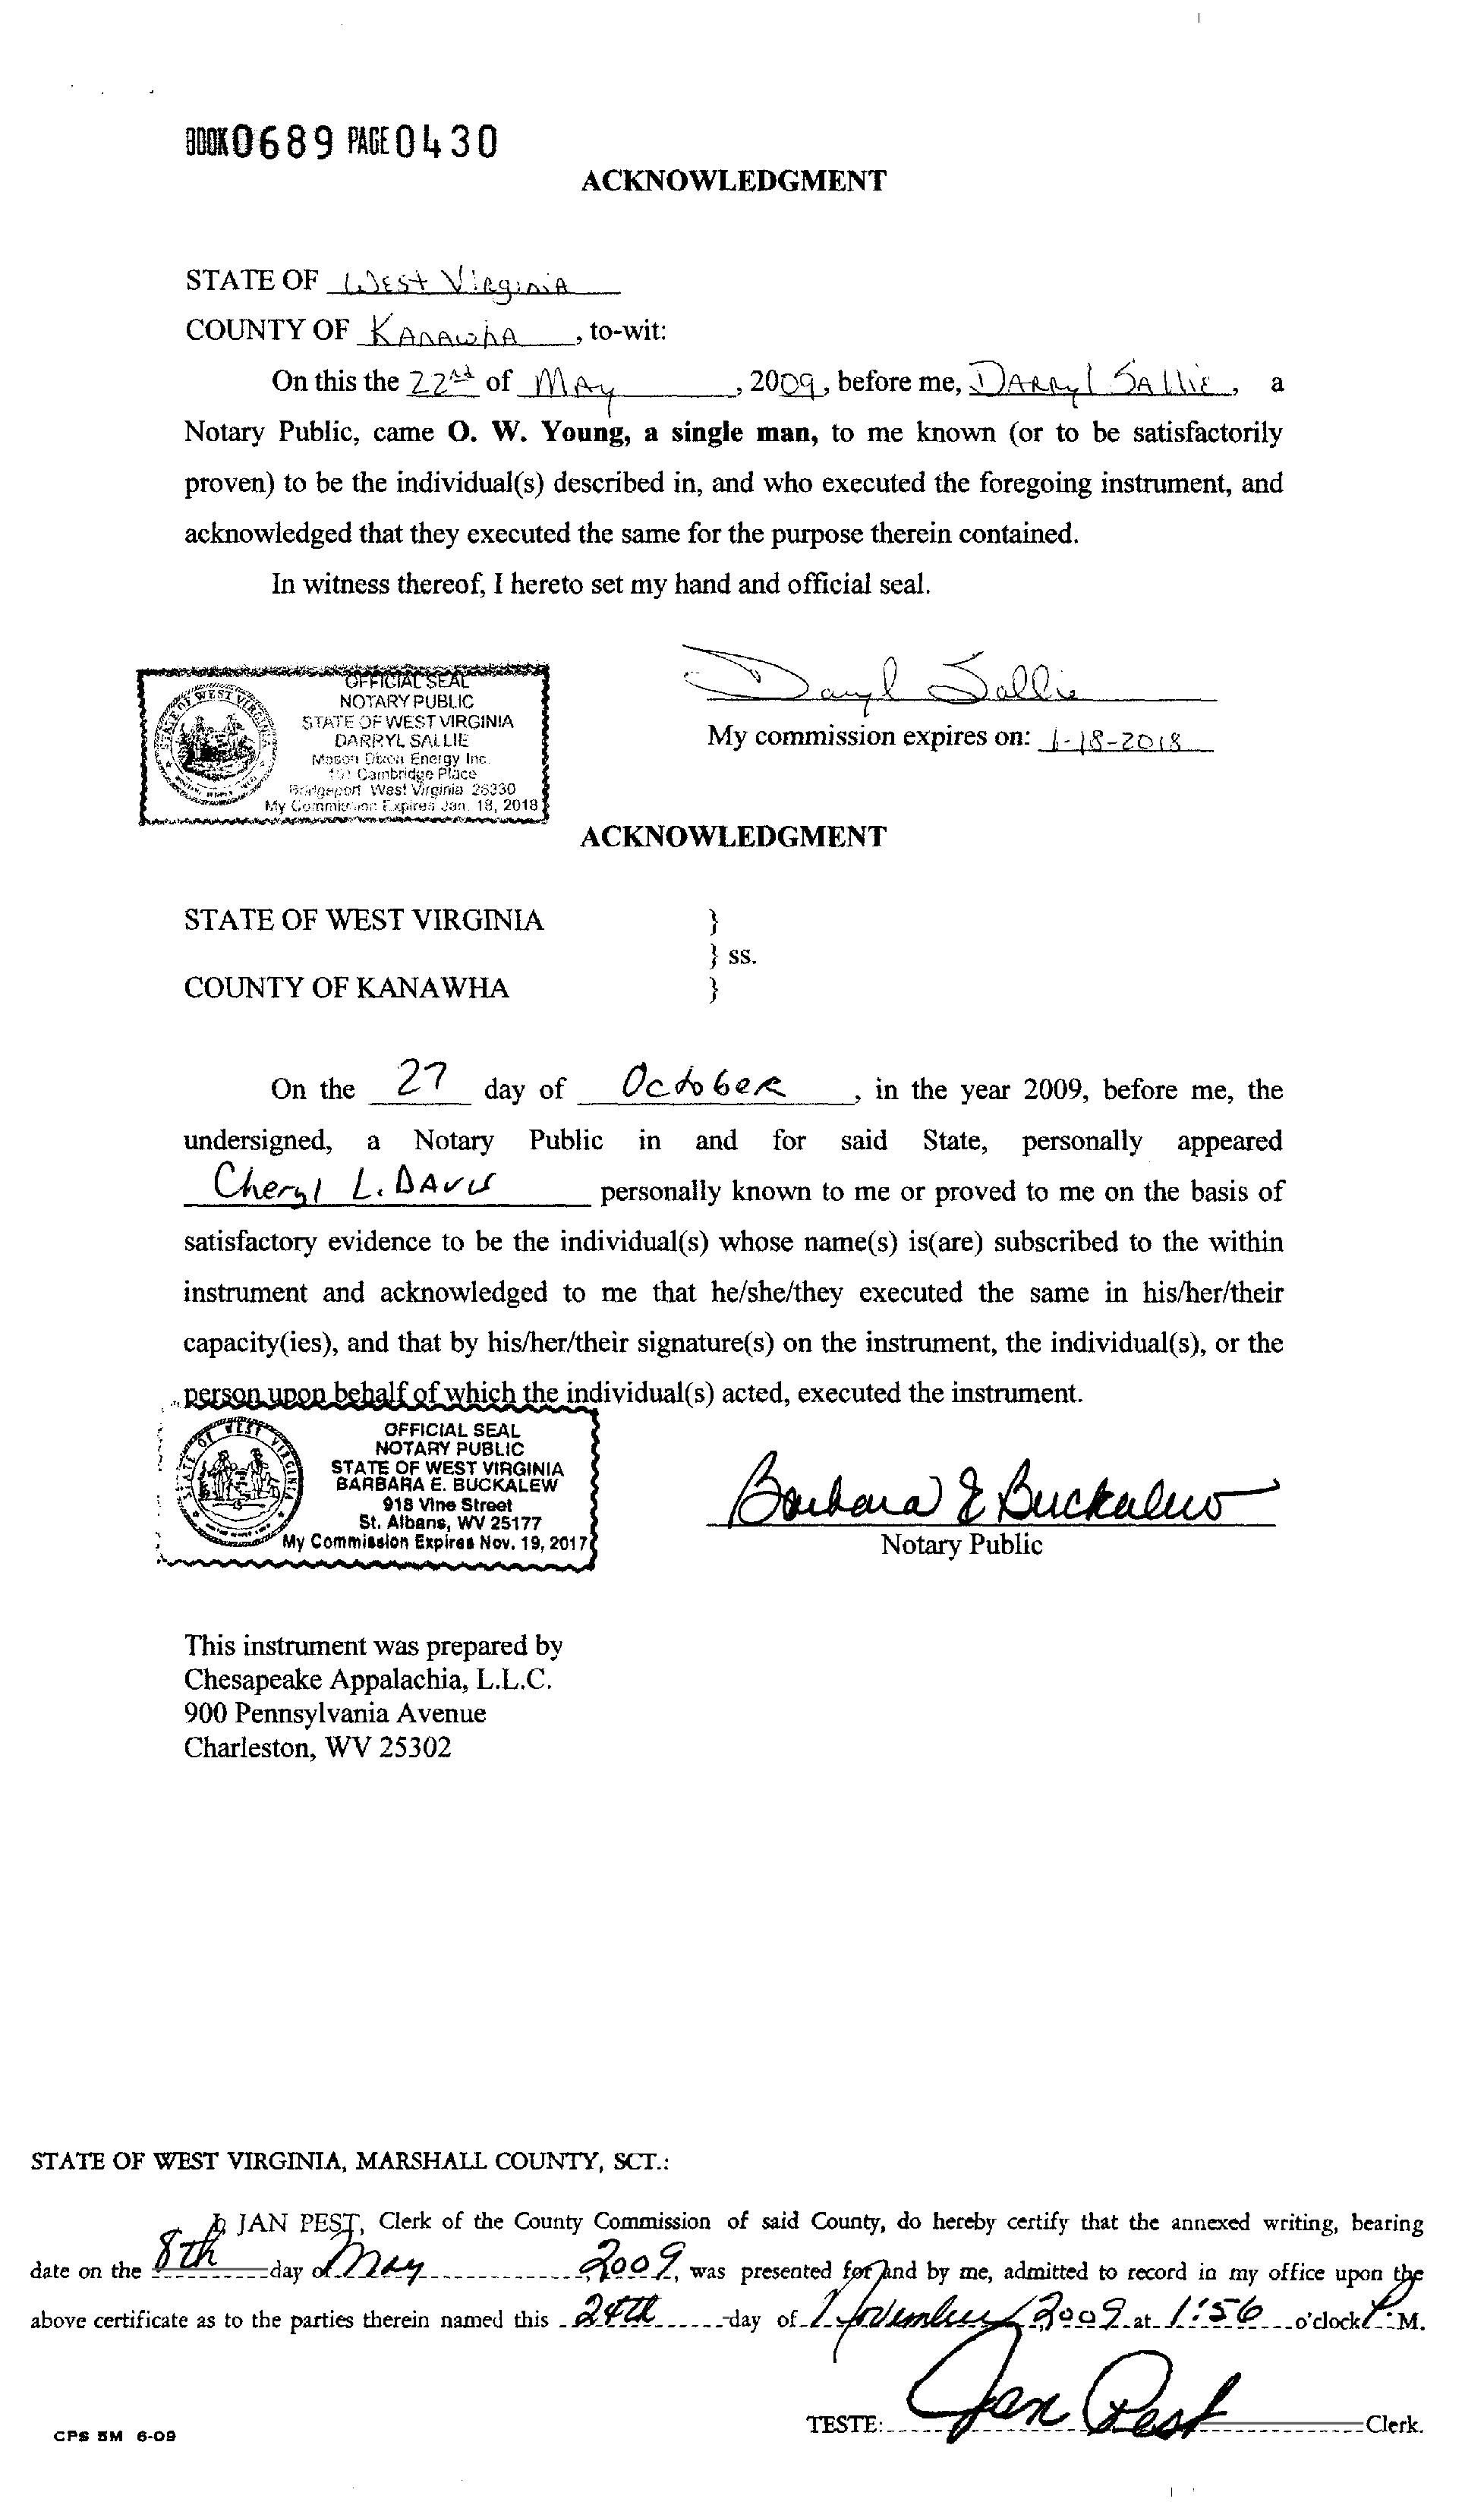 BOOK 0689 PAGE 0430
ACKNOWLEDGMENT
STATE OF West Virginia
COUNTY OF Kanawha, to-wit:
On this the 22nd of May, 2009, before me, Darryl Sallie, a
Notary Public, came O. W. Young, a single man, to me known (or to be satisfactorily
proven) to be the individual(s) described in, and who executed the foregoing instrument, and
acknowledged that they executed the same for the purpose therein contained.
In witness thereof, I hereto set my hand and official seal.
Darryl Sallie
My commission expires on: 1-18-2018
STATE OF WEST VIRGINIA
OFFICIAL SEAL
NOTARY PUBLIC
STATE OF WEST VIRGINIA
DARRYL SALLIE
Mason Dixon Energy Inc.
Cambridge Place
Bridgeport West Virginia 26330
My Commission Expires Jan. 18, 2018
ACKNOWLEDGMENT
STATE OF WEST VIRGINIA }
} ss.
COUNTY OF KANAWHA }
On the 27 day of October, in the year 2009, before me, the
undersigned, a Notary Public in and for said State, personally appeared
Cheryl L. Davis personally known to me or proved to me on the basis of
satisfactory evidence to be the individual(s) whose name(s) is(are) subscribed to the within
instrument and acknowledged to me that he/she/they executed the same in his/her/their
capacity(ies), and that by his/her/their signature(s) on the instrument, the individual(s), or the
person upon behalf of which the individual(s) acted, executed the instrument.
STATE OF WEST VIRGINIA
OFFICIAL SEAL
NOTARY PUBLIC
STATE OF WEST VIRGINIA
BARBARA E. BUCKALEW
918 Vine Street
St. Albans, WV 25177
My Commission Expires Nov. 19, 2017
Barbara E Buckalew
Notary Public
This instrument was prepared by
Chesapeake Appalachia, L.L.C.
900 Pennsylvania Avenue
Charleston, WV 25302
STATE OF WEST VIRGINIA, MARSHALL COUNTY, SCT.:
I, JAN PEST, Clerk of the County Commission of said County, do hereby certify that the annexed writing, bearing
date on the 8th day of May, 2009, was presented for and by me, admitted to record in my office upon the
above certificate as to the parties therein named this 24th day of November, 2009 at 1:56 o'clock P. M.
TESTE: Jan Pest Clerk.
CPS 5M 6-09